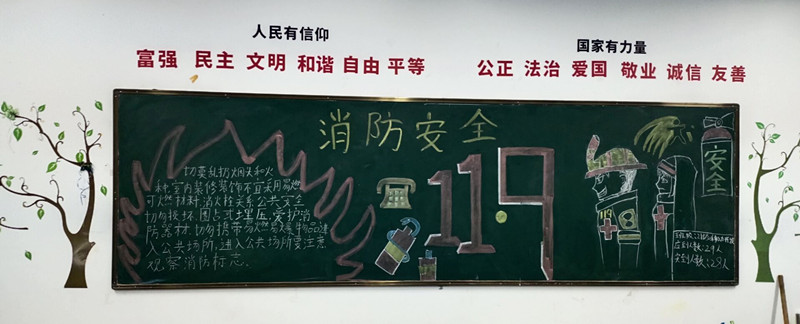 人民有信仰
富强 民主 文明 和谐 自由 平等
国家有力量
公正 法治 爱国 敬业 诚信 友善
消防安全
切莫乱扔烟头和火
种,室内装修装饰不宜采用易燃
可燃材料.消火栓关系公共安全
切勿损坏.圈占或埋压.爱护消
防器材.切勿携带易燃易爆物品进
入公共场所,进入公共场所要注意
观察消防标志.
119
119
安全
应到人数:29人
实到人数:29人